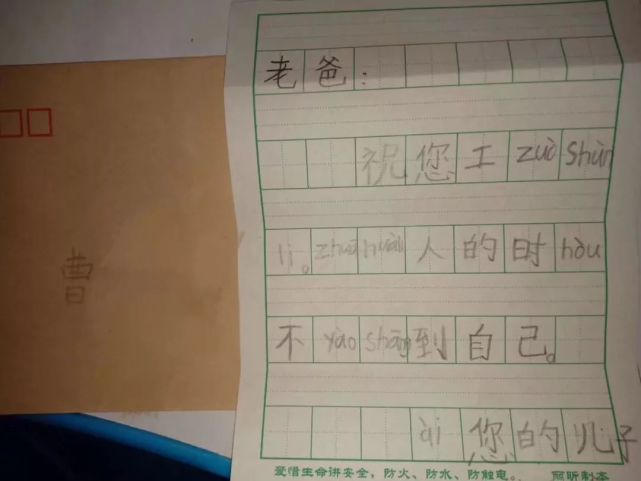 老爸：
祝您工zuò shùn
lì。zhuā huài人的时hòu
不yào shāng到自己。
ài您的儿子
爱惜生命讲安全，防火、防水、防触电。
曹